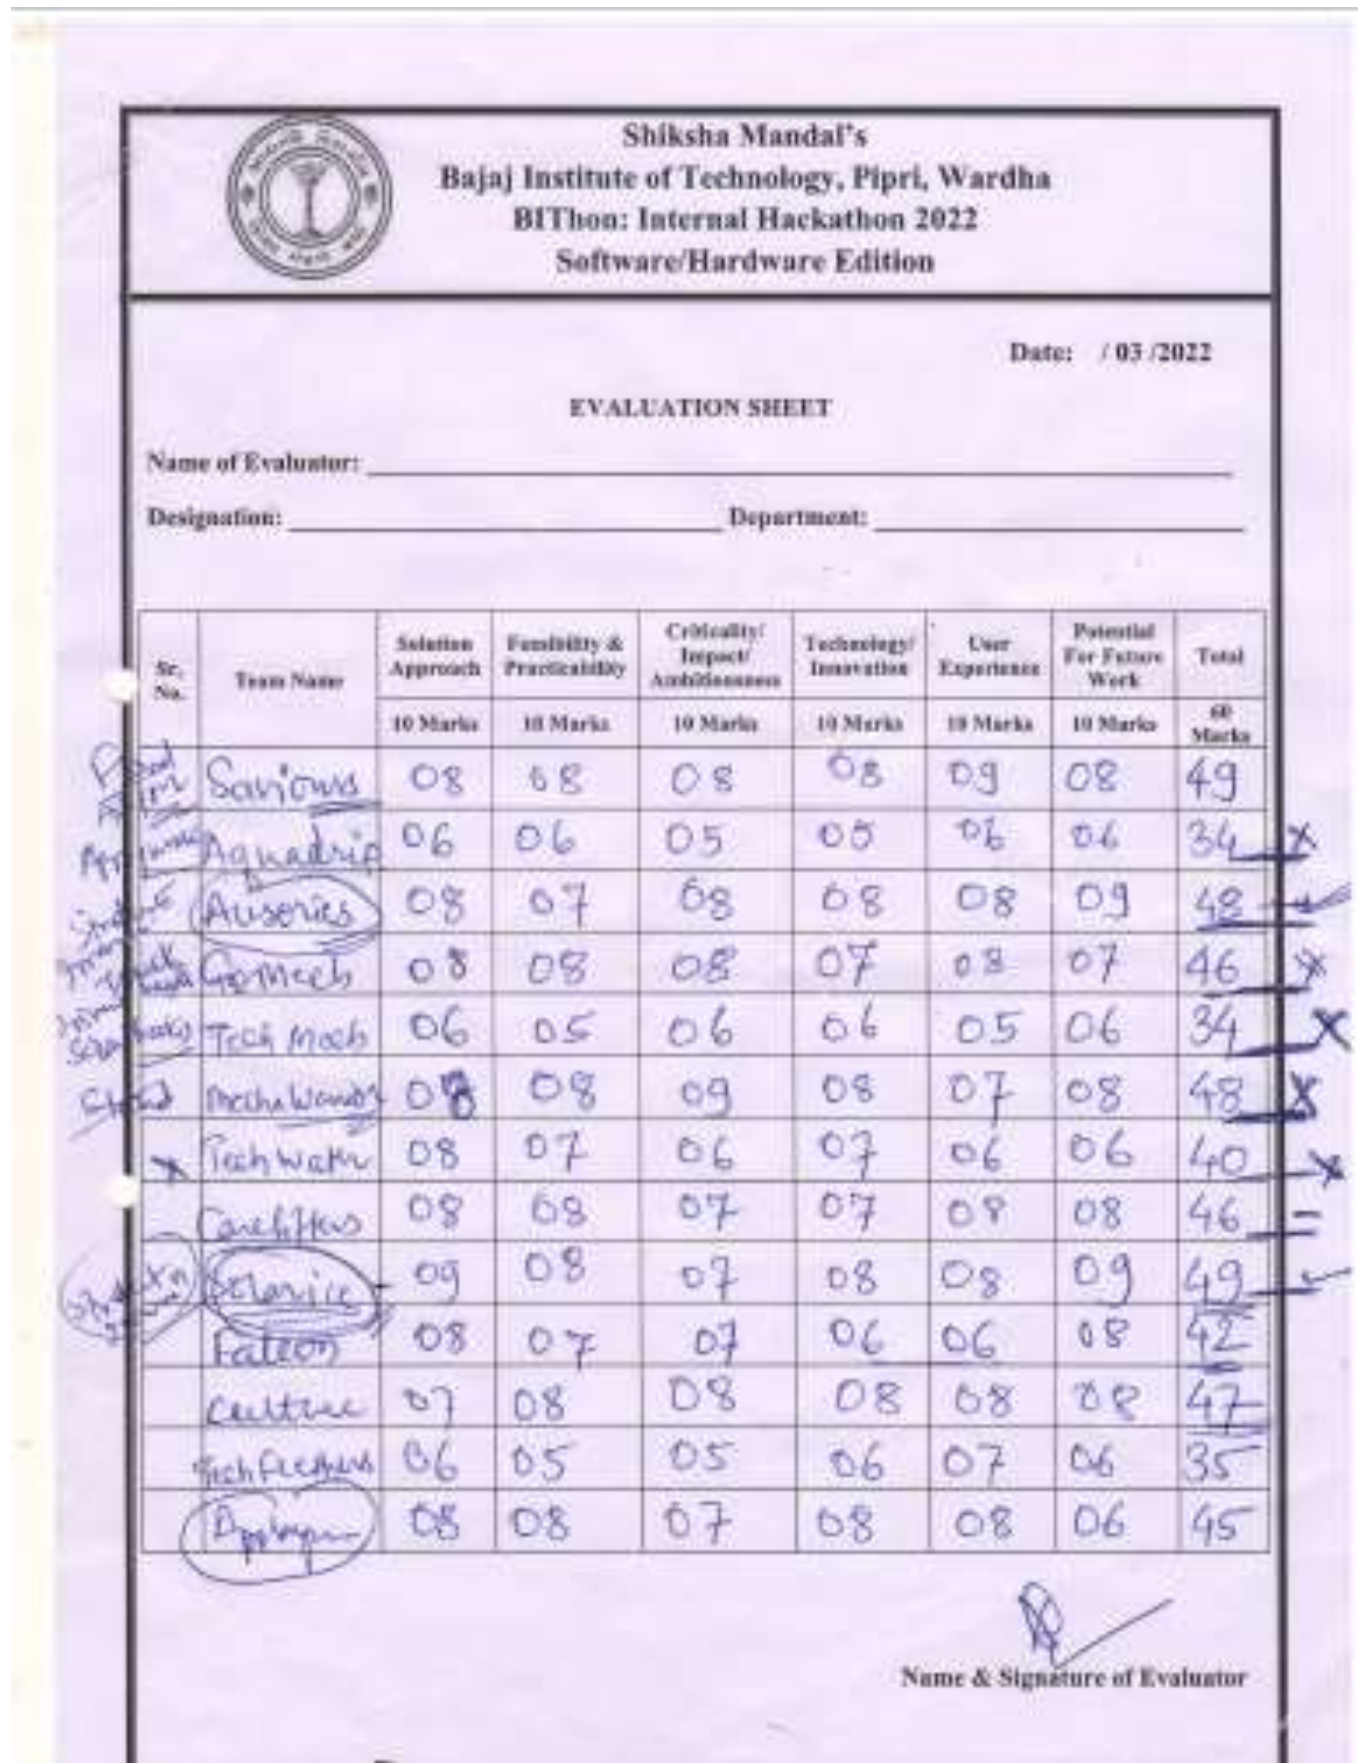 Shiksha Mandal's
Bajaj Institute of Technology, Pipri, Wardha
BIThon: Internal Hackathon 2022
Software/Hardware Edition
Date: / 03 /2022
EVALUATION SHEET
Name of Evaluator:
Designation: Department:
Sr. No. Team Name Solution Approach Feasibility & Practicability Criticality/ Impact/ Ambitiousness Technology/ Innovation User Experience Potential For Future Work Total
10 Marks 10 Marks 10 Marks 10 Marks 10 Marks 10 Marks 60 Marks
Saviours 08 08 08 08 09 08 49
Aquadrip 06 06 05 05 06 06 34 x
Ausories 08 07 08 08 08 09 48
GoMech 08 08 08 07 08 07 46 x
Tech Mech 06 05 06 06 05 06 34 x
08 08 09 08 07 08 48 x
x Tech 08 07 06 07 06 06 40 x
08 08 07 07 08 08 46
09 08 07 08 08 09 49
Falcon 08 07 07 06 06 08 42
07 08 08 08 08 08 47
Tech 06 05 05 06 07 06 35
08 08 07 08 08 06 45
Name & Signature of Evaluator